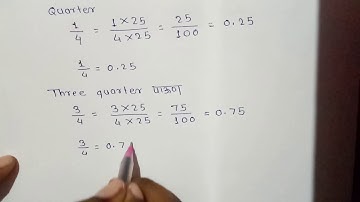 Quorter
1/4 = 1×25/4×25 = 25/100 = 0.25
1/4 = 0.25
Three quorter
3/4 = 3×25/4×25 = 75/100 = 0.75
3/4 = 0.7